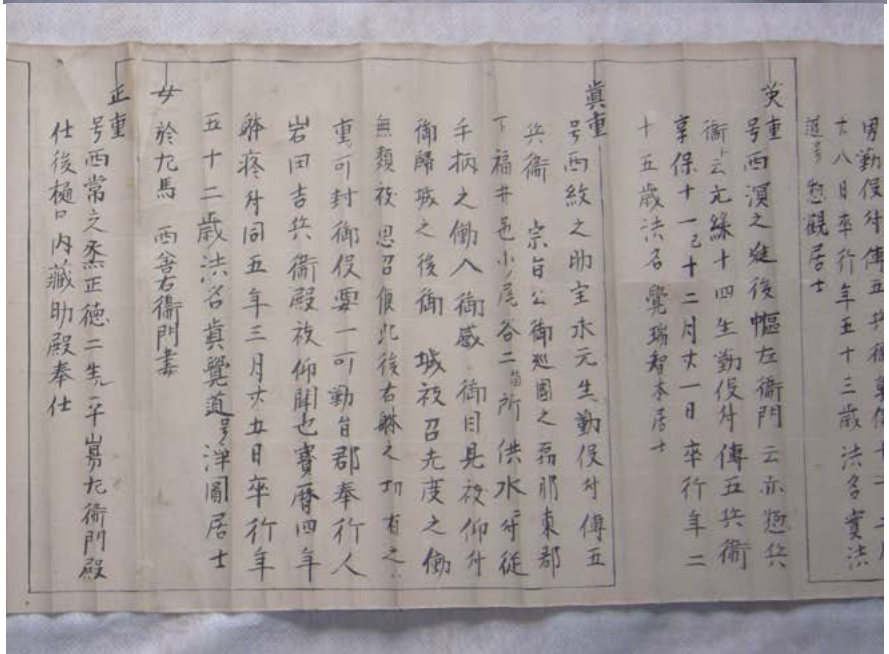 男勤役付傳五兵衛
六八日卒行年五十三歳法名實法
道号 観居士
英重
号西濱之 後 左衛門云亦 兵
衛ト云元緑十四生勤役付傳五兵衛
享保十一己十二月廿一日卒行年二
十五歳法名覺瑞智本居士
真重
号西紋之助宝永元生勤役付傳五
兵衛 宗旨公御巡國之 那東郡
下福井邑小尾谷二箇所供水付従
手柄之働入御感 御目見被仰付
御歸城之後御 城被召先度之働
無類被思召候此後右躰之功有之ハ
重可封御役要一可勤旨郡奉行人
岩田吉兵衛殿被仰聞也寳暦四年
躰疼付同五年三月廿五日卒行年
五十二歳法名真覺道号浄圓居士
女 於九馬 西舎右衛門妻
正重
号西常之烝正徳二生 平 九衛門殿
仕後樋口内藏助殿奉仕